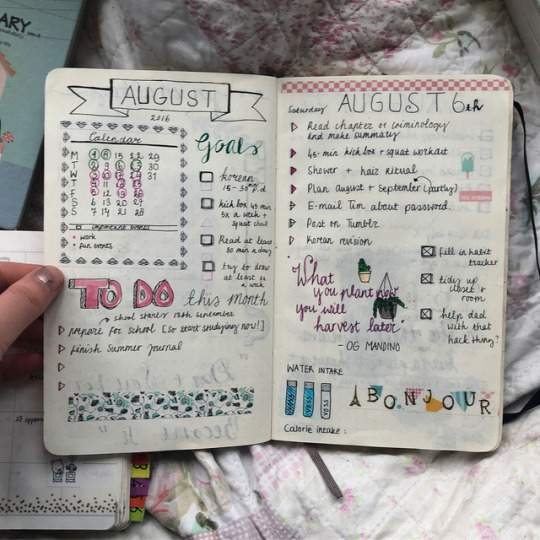 ARY
AUGUST
2016
Calendar
M 1 8 15 22 29
T 2 9 16 23 30
W 3 10 17 24 31
T 4 11 18 25
F 5 12 19 26
S 6 13 20 27
S 7 14 21 28
IMPORTANT DATES
work
fun events
Goals
korean
15-30 p.d
kick box 45 min
5x a week +
squat chal
Read at least
30 min a day
try to draw
at least 2x
a week
TO DO this month
school starts 12th september
prepare for school [So start studying now!]
Finish Summer Journal
Saturday AUGUST 6th
Read chapter of criminology
and make summary
45-min kick box + squat workout
Shower + hair ritual
Plan august + September (partly)
E-mail Tim about password
Post on Tumblr
Korean revision
fill in habit
tracker
tidy up
closet +
room
help dad
with that
hack thing?
What
you plant now
you will
harvest later
- OG MANDINO
WATER INTAKE
VOSS
VOSS
VOSS
BONJOUR
Calorie intake :